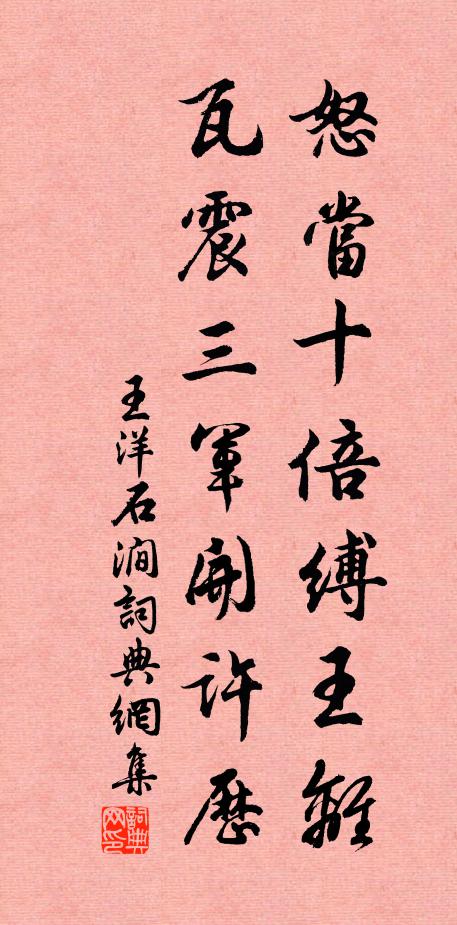 怒當十倍縛王離
瓦震三軍開許歷
王洋石澗詞典網集
詞典网印